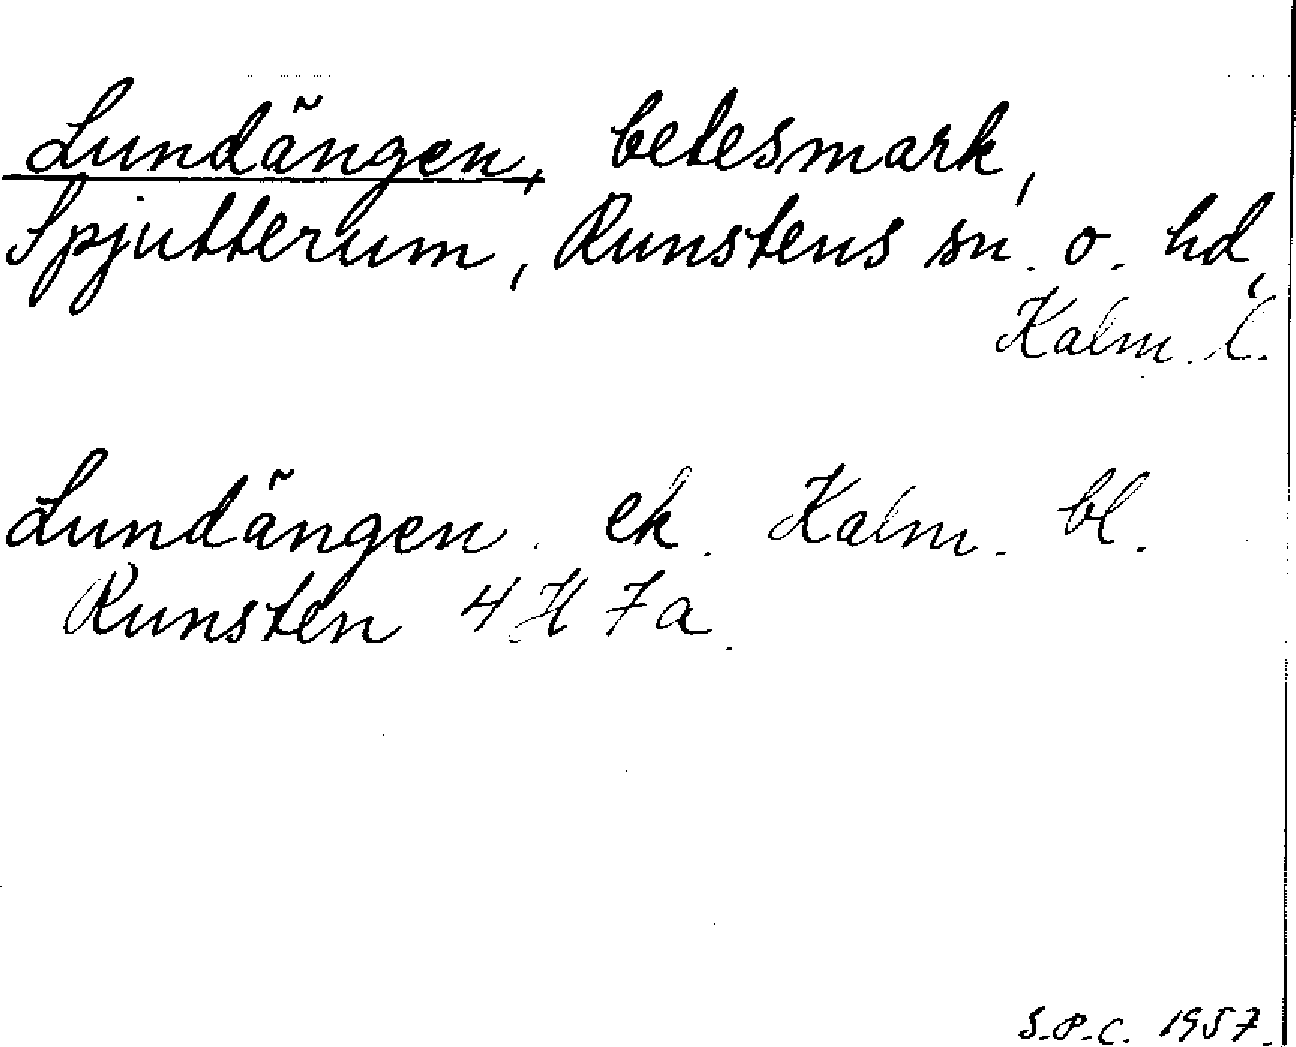 Lundängen, betesmark,
Spjutterum, Runstens sn. o. hd,
Kalm. l.
Lundängen. ek. Kalm. bl.
Runsten 4 H 7a.
S.P.C. 1957.